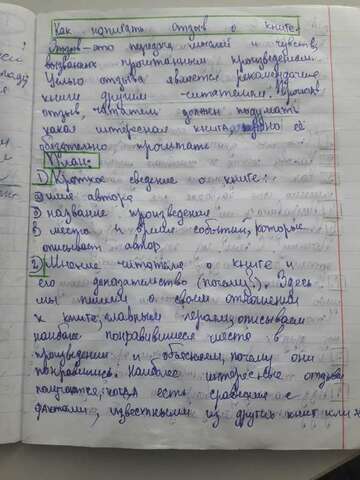 Как написать отзыв о книге
Отзыв - это передача мыслей и чувств,
вызваных прочитанным произведением.
Целью отзыва является рекомендация
книги другим читателям. Прочитав
отзыв, читатель должен подумать:
какая интересная книга, нужно её
обязательно прочитать
План:
1) Краткое сведение о книге:
а) имя автора
б) название произведения
в) место и время событий, которые
описывает автор
2) Мнение читателя о книге и
его доказательство (почему?). Здесь
мы пишем о своем отношении
к книге, главным героям, описываем
наиболее понравившиеся места в
произведении и объясняем, почему они
понравились. Наиболее интересные отзывы
получаются, когда есть сравнение с
фактами, известными из других книг или